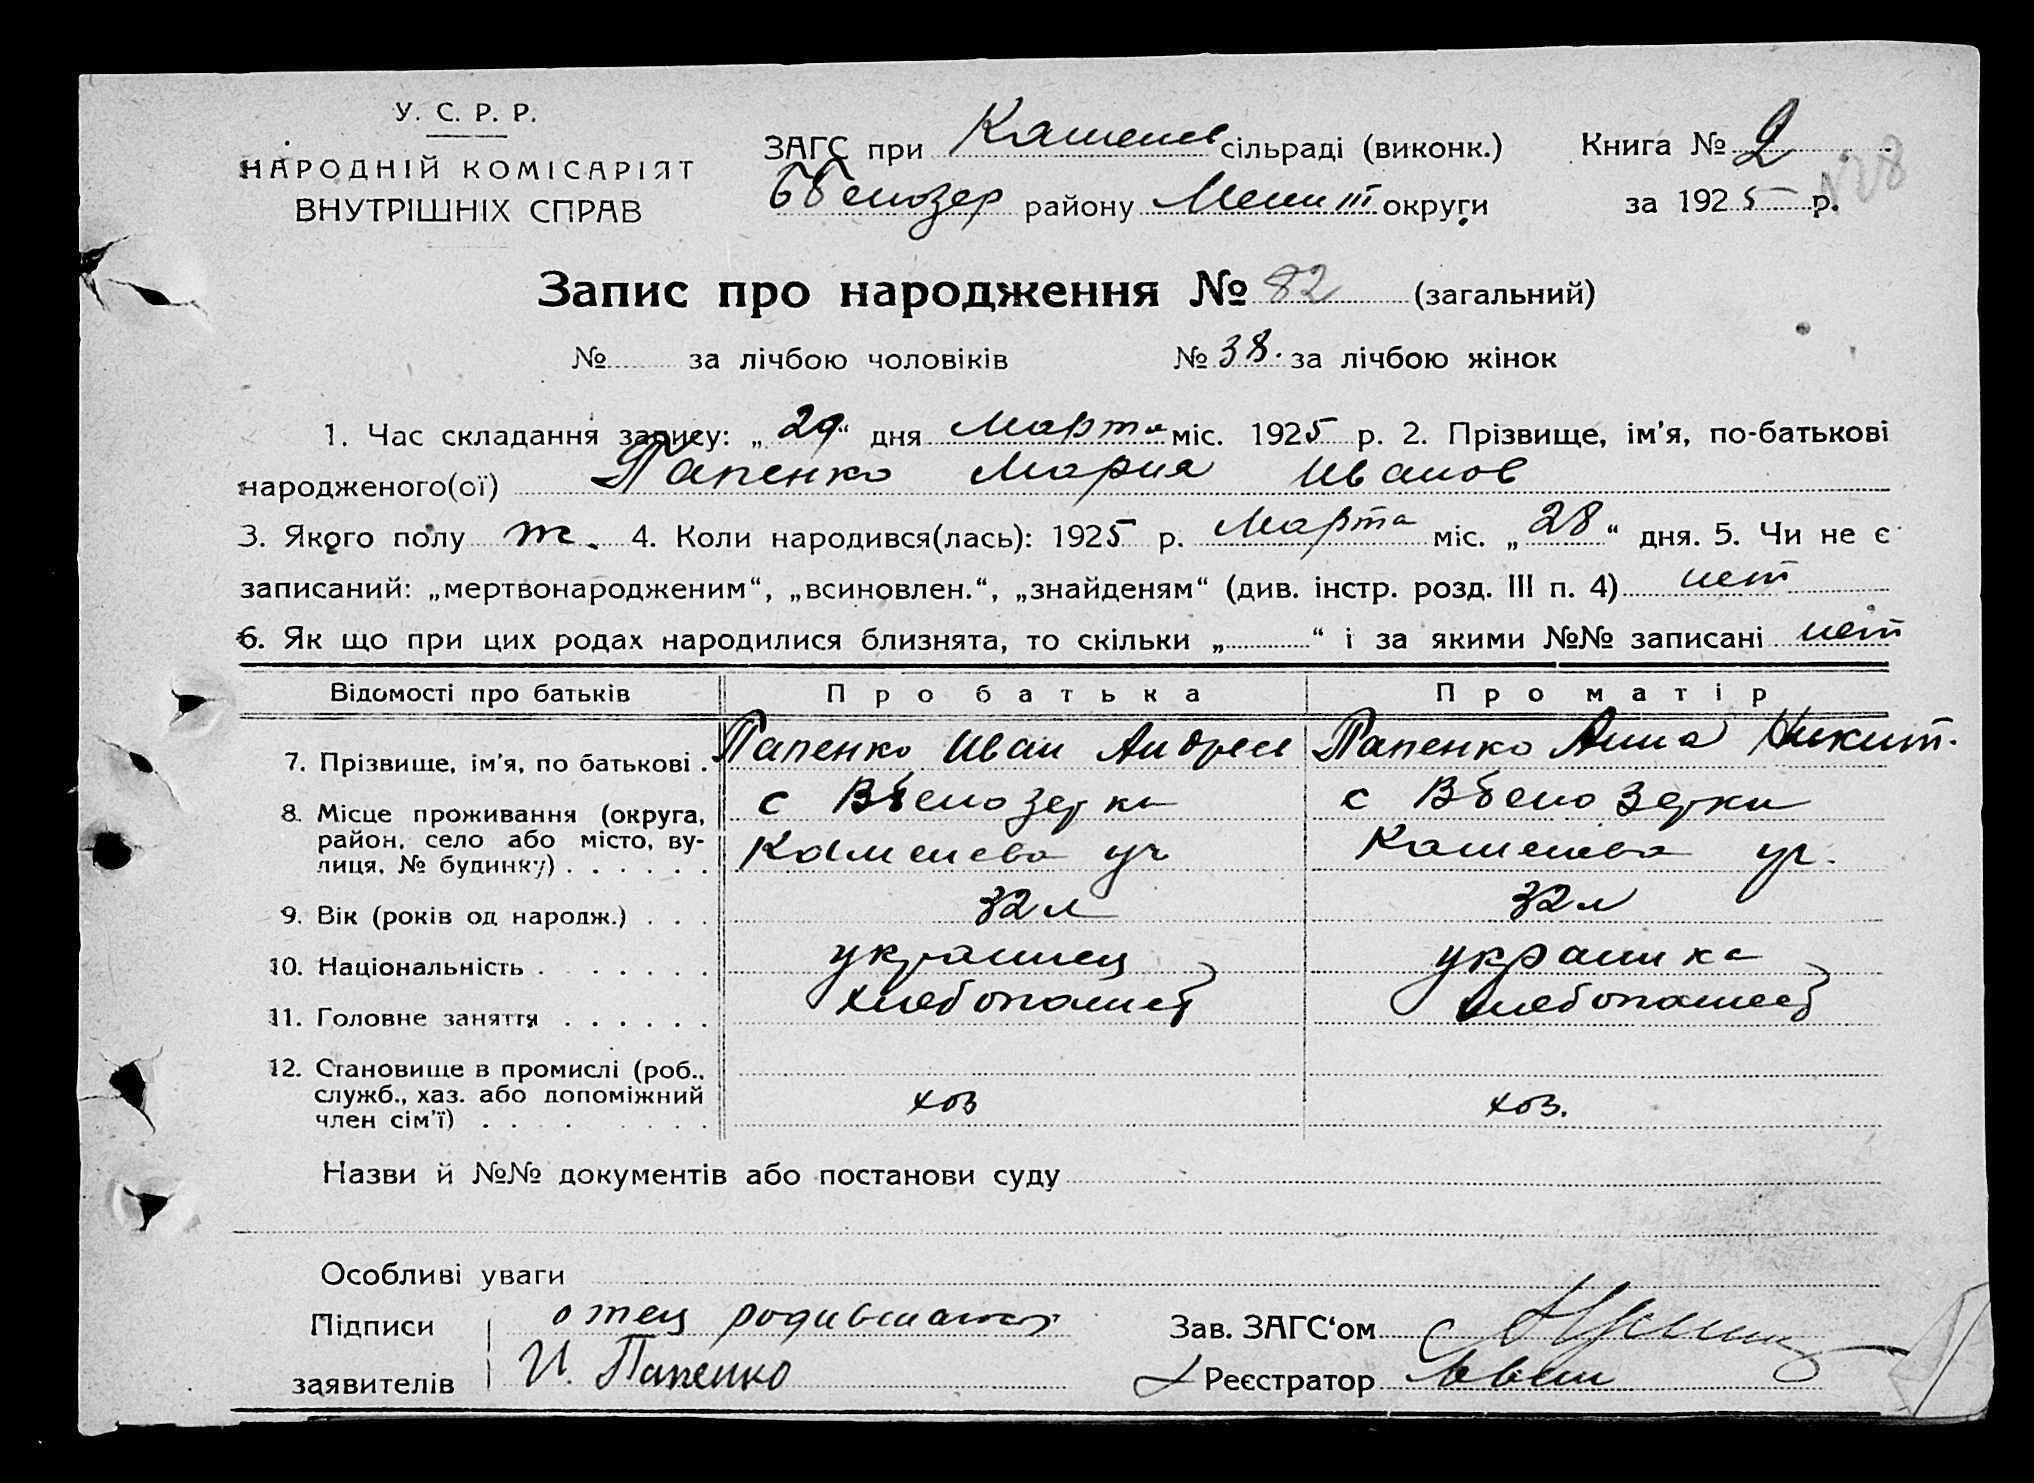 У. С. Р. Р.
НАРОДНІЙ КОМІСАРІЯТ
ВНУТРІШНІХ СПРАВ
ЗАГС при Каменев сільраді (виконк.) Книга № 2
району Мелит округи за 1925 р.
Запис про народження № 82 (загальний)
№ за лічбою чоловіків № 38. за лічбою жінок
1. Час складання запису: „29“ дня Марта міс. 1925 р. 2. Прізвище, ім'я, по-батькові
народженого(ої) Папенко Мария Иванов
3. Якого полу ж. 4. Коли народився(лась): 1925 р. Марта міс. „28“ дня. 5. Чи не є
записаний: „мертвонародженим“, „всиновлен.“, „знайденям“ (див. інстр. розд. III п. 4) нет
6. Як що при цих родах народилися близнята, то скільки „ “ і за якими №№ записані нет
Відомості про батьків Про батька Про матір
7. Прізвище, ім'я, по батькові . Папенко Иван Андрее Папенко Анна Никит.
8. Місце проживання (округа, район, село або місто, вулиця, № будинку) с с
Каменева Каменева
9. Вік (років од народж.) 32 л 32 л
10. Національність украинец украинка
11. Головне заняття хлебопашец
12. Становище в промислі (роб., служб., хаз. або допоміжний член сім'ї) хоз хоз.
Назви й №№ документів або постанови суду
Особливі уваги
Підписи заявителів отец родившейся
И. Папенко
Зав. ЗАГС'ом
Реєстратор